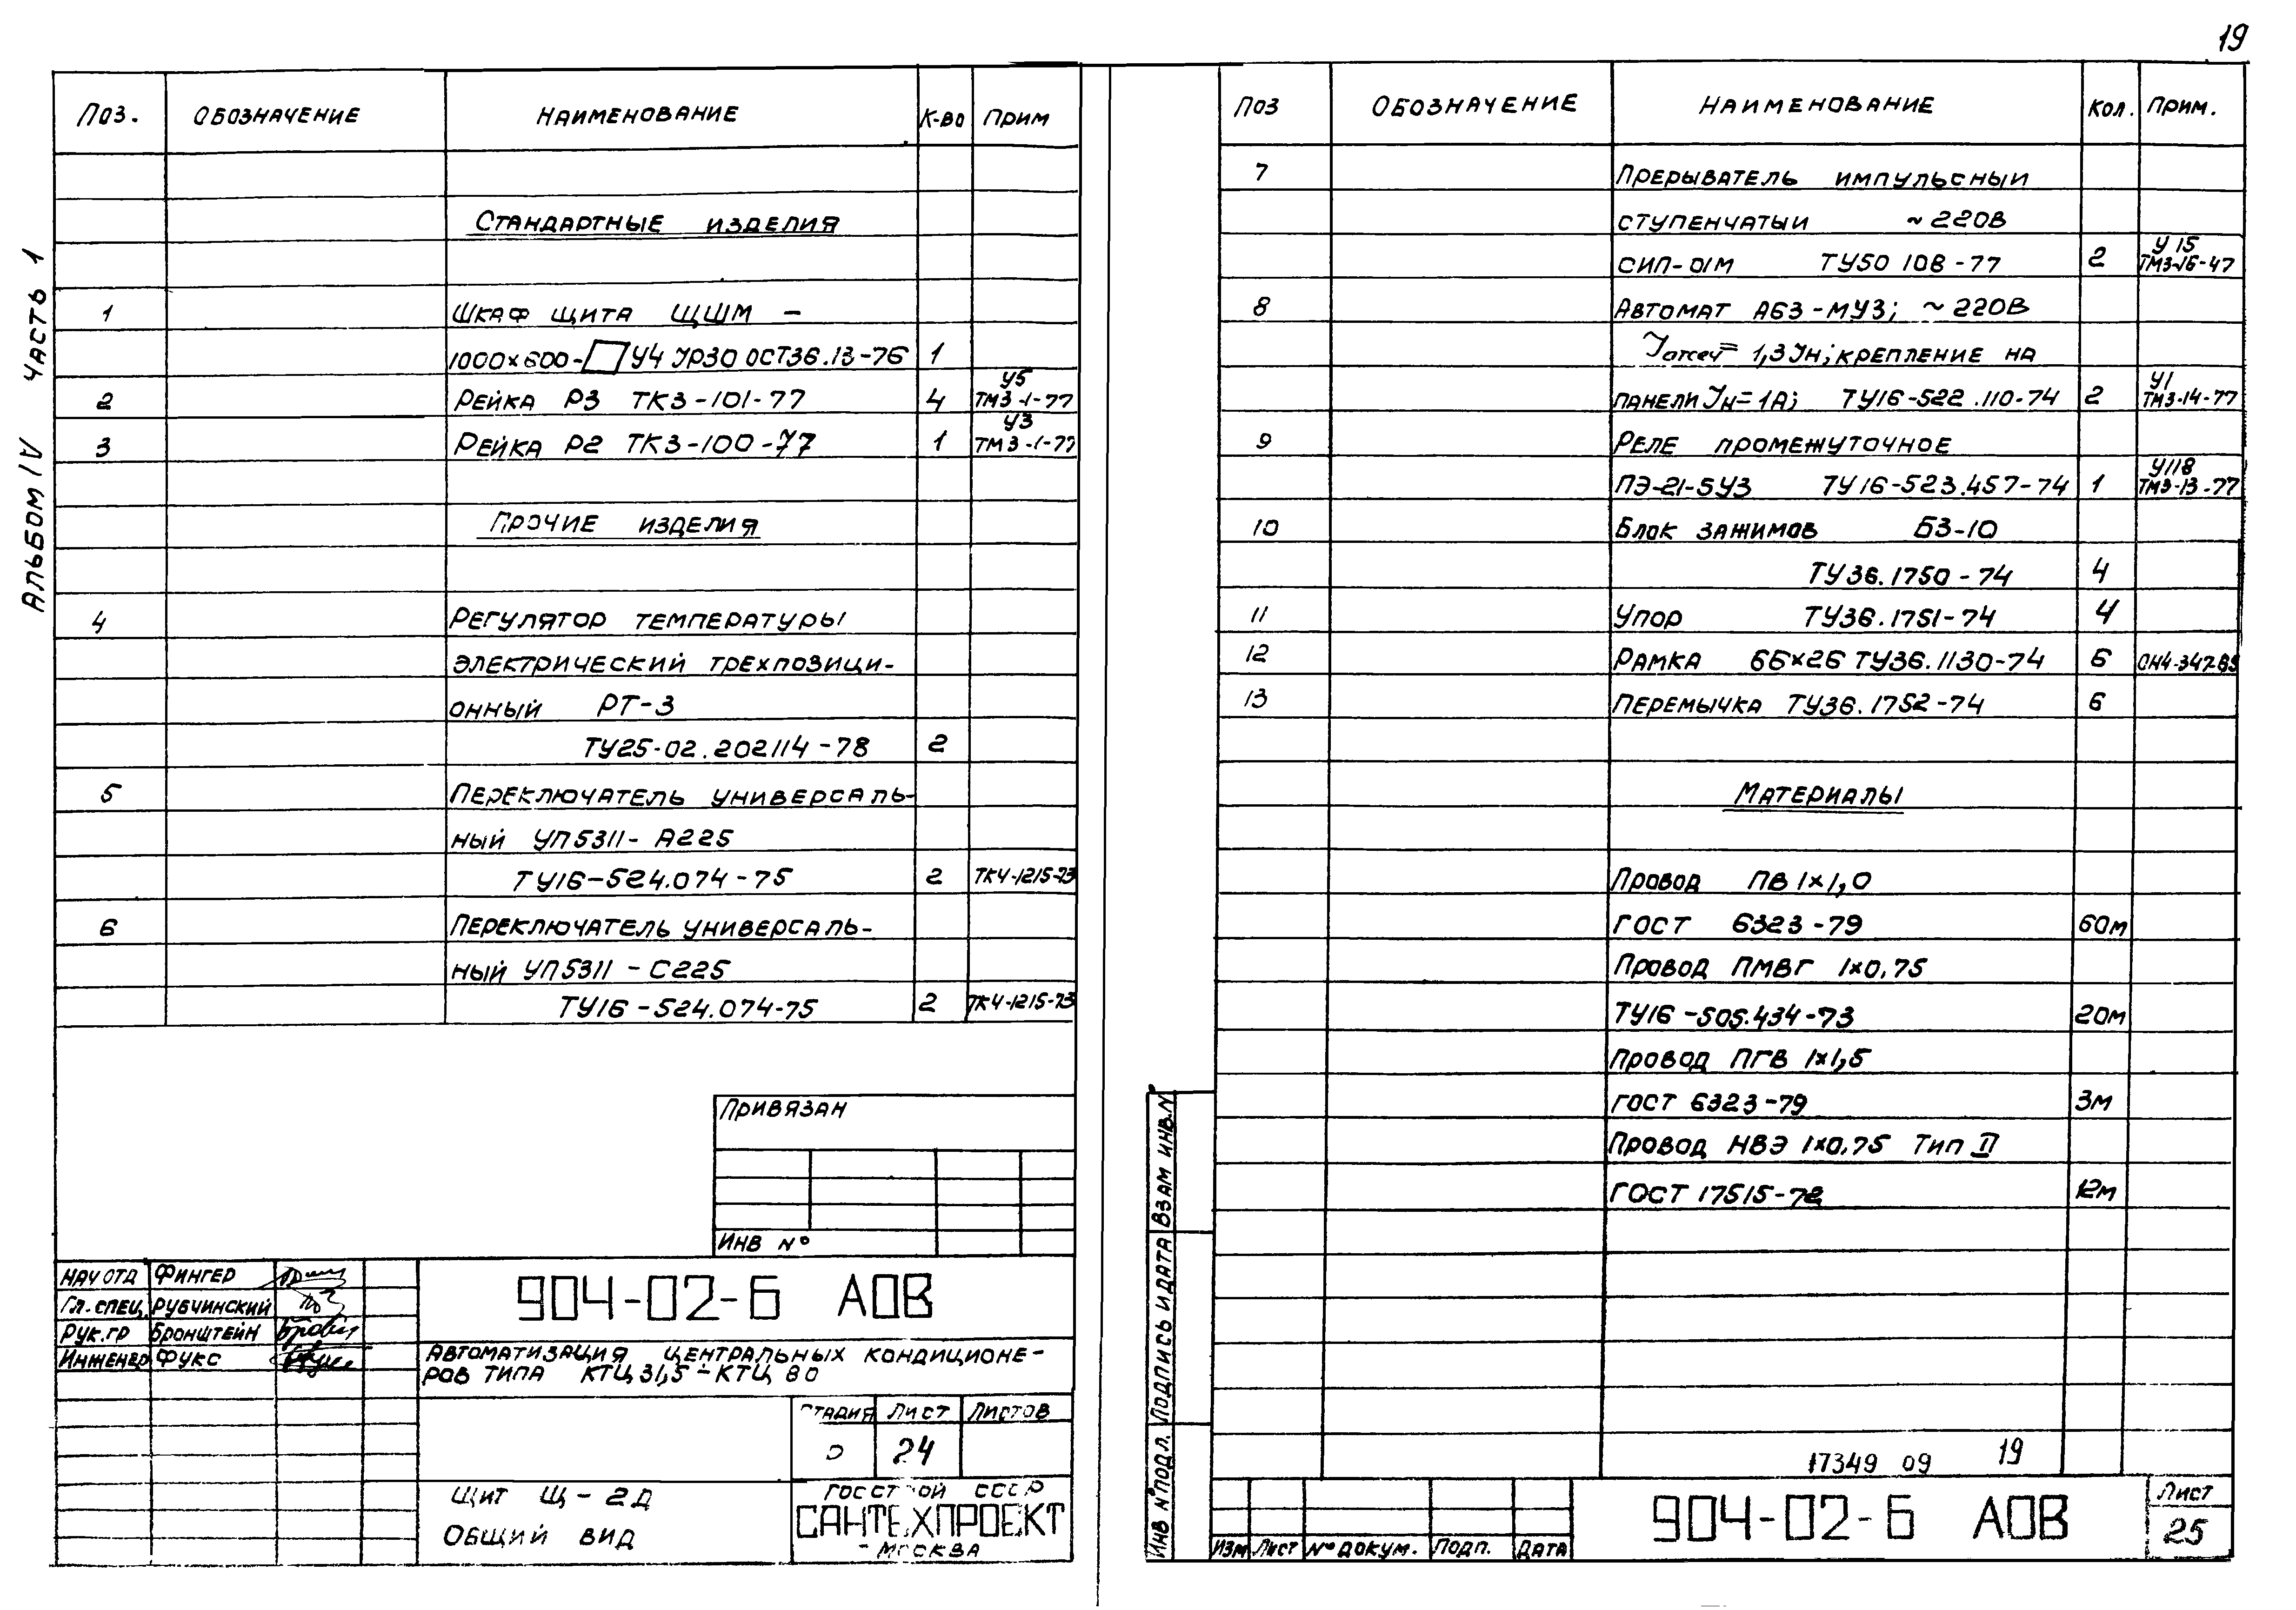 19
Альбом IV часть 1
Поз. Обозначение Наименование К-во Прим
Стандартные изделия
1 Шкаф щита ЩШМ –
1000×600- У4 JР30 ОСТ36.13-76 1
У5
2 Рейка Р3 ТК3-101-77 4 ТМ3-1-77
У3
3 Рейка Р2 ТК3-100-77 1 ТМ3-1-77
Прочие изделия
4 Регулятор температуры
электрический трехпозици-
онный РТ-3
ТУ25-02.202114-78 2
5 Переключатель универсаль-
ный УП5311-А225
ТУ16-524.074-75 2 ТК4-1215-73
6 Переключатель универсаль-
ный УП5311-С225
ТУ16-524.074-75 2 ТК4-1215-73
Привязан
Инв №
Нач отд Фингер
Гл. спец. Рубчинский
Рук. гр Бронштейн
Инженер Фукс
904-02-6 АОВ
Автоматизация центральных кондиционе-
ров типа КТЦ 31,5÷КТЦ 80
Стадия Лист Листов
24
Щит Щ-2Д
Общий вид
Госстрой СССР
САНТЕХПРОЕКТ
Москва
Поз Обозначение Наименование Кол. Прим.
7 Прерыватель импульсный
ступенчатый ~220В
У 15
СИП-01М ТУ50 108-77 2 ТМ3-16-47
8 Автомат А63-МУ3; ~220В
Jотсеч=1,3Jн; крепление на
У1
панели Jн=1А; ТУ16-522.110-74 2 ТМ3-14-77
9 Реле промежуточное
У118
ПЭ-21-5У3 ТУ16-523.457-74 1 ТМ3-13-77
10 Блок зажимов БЗ-10
ТУ36.1750-74 4
11 Упор ТУ36.1751-74 4
12 Рамка 66×26 ТУ36.1130-74 6
13 Перемычка ТУ36.1752-74 6
Материалы
Провод ПВ 1×1,0
ГОСТ 6323-79 60м
Провод ПМВГ 1×0,75
ТУ16-505.434-73 20м
Провод ПГВ 1×1,5
ГОСТ 6323-79 3м
Провод НВЭ 1×0,75 Тип II
ГОСТ 17515-72 12м
17349 09 19
Инв № подл. Подпись и дата Взам инв. N
Изм Лист № докум. Подп. Дата
904-02-6 АОВ
Лист
25